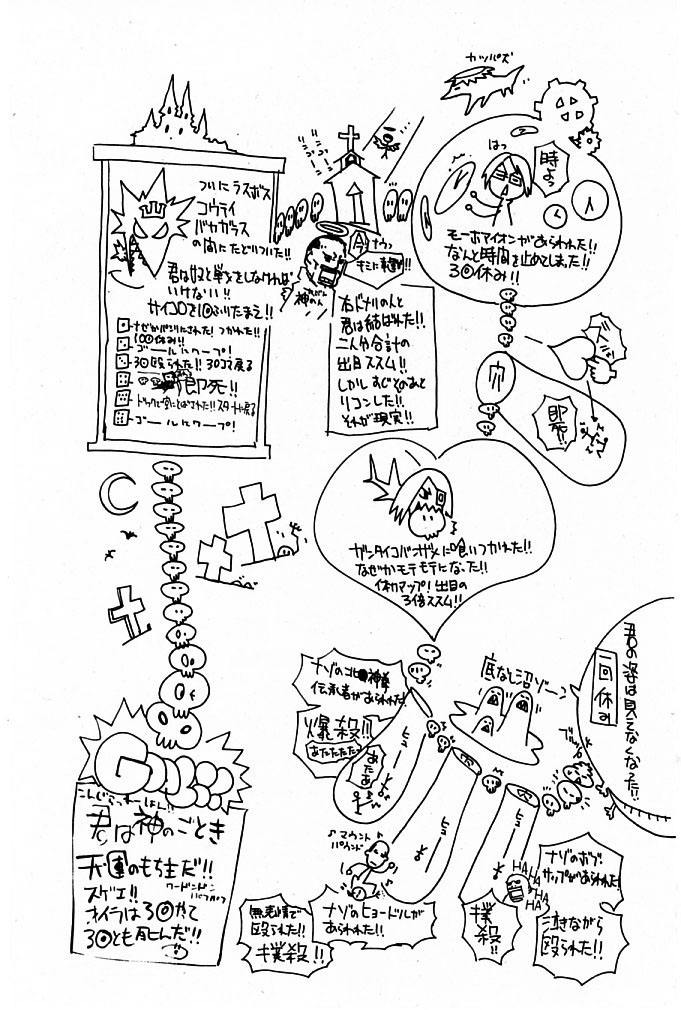 カツパズ
はっ
時よっ
モーホマイオンがあらわれた!!
なんと時間を止めてしまった!!
3回休み!!
穴
即死!!
今
ナウッ
キミに
神のん
右ドナリの人と
君は結ばれた!!
二人分合計の
出目ススム!!
しかしすぐそのあと
リコンした!!
それが現実!!
ついにラスボス
コウテイ
バヤガラス
の間にたどりついた!!
君は奴と戦をしなければ
いけない!!
サイコロを1回ふりたまえ!!
100休み!!
ゴールにワープ!
3回殴られた!! 30コマ戻る
即死!!
ドラクルに空にとばされた!! スタートに戻る
ゴールにワープ!
ガンタイコバンザメに喰いつかれた!!
なぜかモテモテになった!!
体力マップ! 出目の
3倍ススム!!
君の姿は見えなくなった!!
一回休み
底なし沼ゾーン
ブルッ
ナゾの北回神拳
伝承者があらわれた!
爆殺!!
あたたたたっ
あたぁ
ヒューー
ヒューー
ヒューー
穴
穴
♪マウント♪
パウンド
ナゾのヒョードルが
あらわれた!!
無表情で
殴られた!!
撲殺!!
HAHA
HA
HA
ナゾのボブ・
サップがあらわれた!
泣きながら
殴られた!!
撲殺!!
君は神のごとき
天運のもち主だ!!
スゲエ!!
オイラは3回やて
3回とも死んだ!!